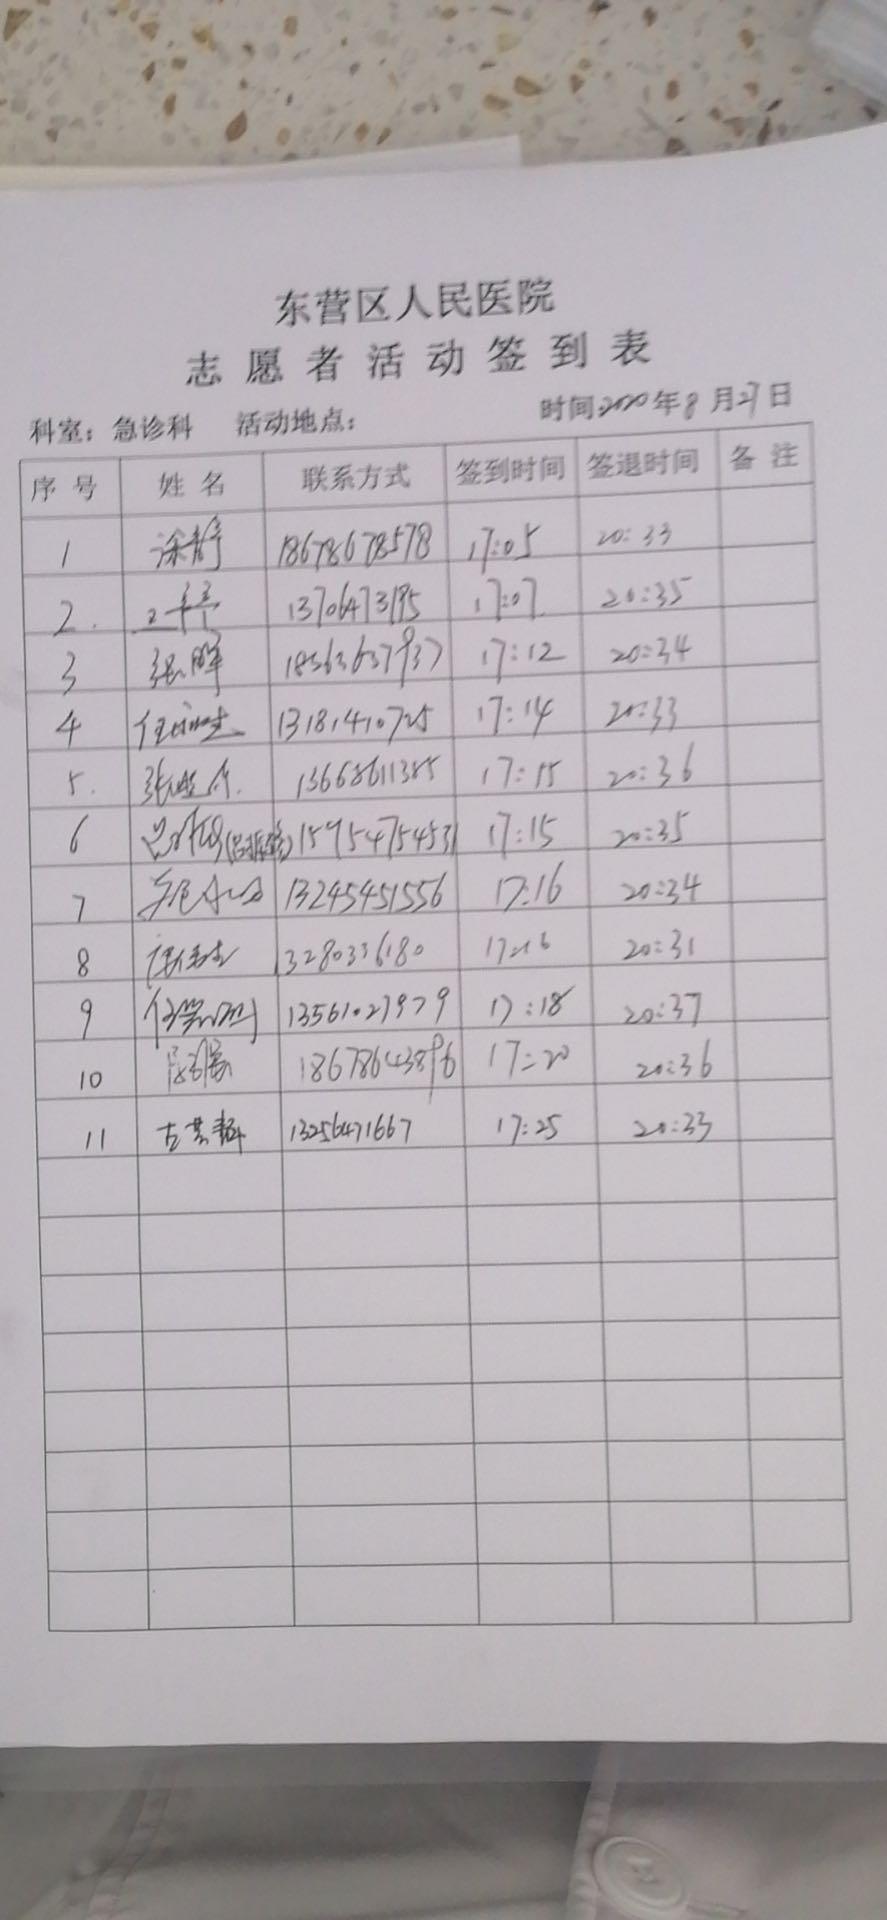 东营区人民医院
志愿者活动签到表
科室：急诊科 活动地点： 时间2020年8月27日
序号 姓名 联系方式 签到时间 签退时间 备注
1 涂静 18678678578 17:05 20:33
2. 13706473195 17:07 20:35
3 张晖 18563637937 17:12 20:34
4 13181410725 17:14 20:33
5. 13668611385 17:15 20:36
6 15954754531 17:15 20:35
7 13245451556 17:16 20:34
8 20:31
9 13561027979 17:18 20:37
10 18678643896 17:20 20:36
11 13256471667 17:25 20:33